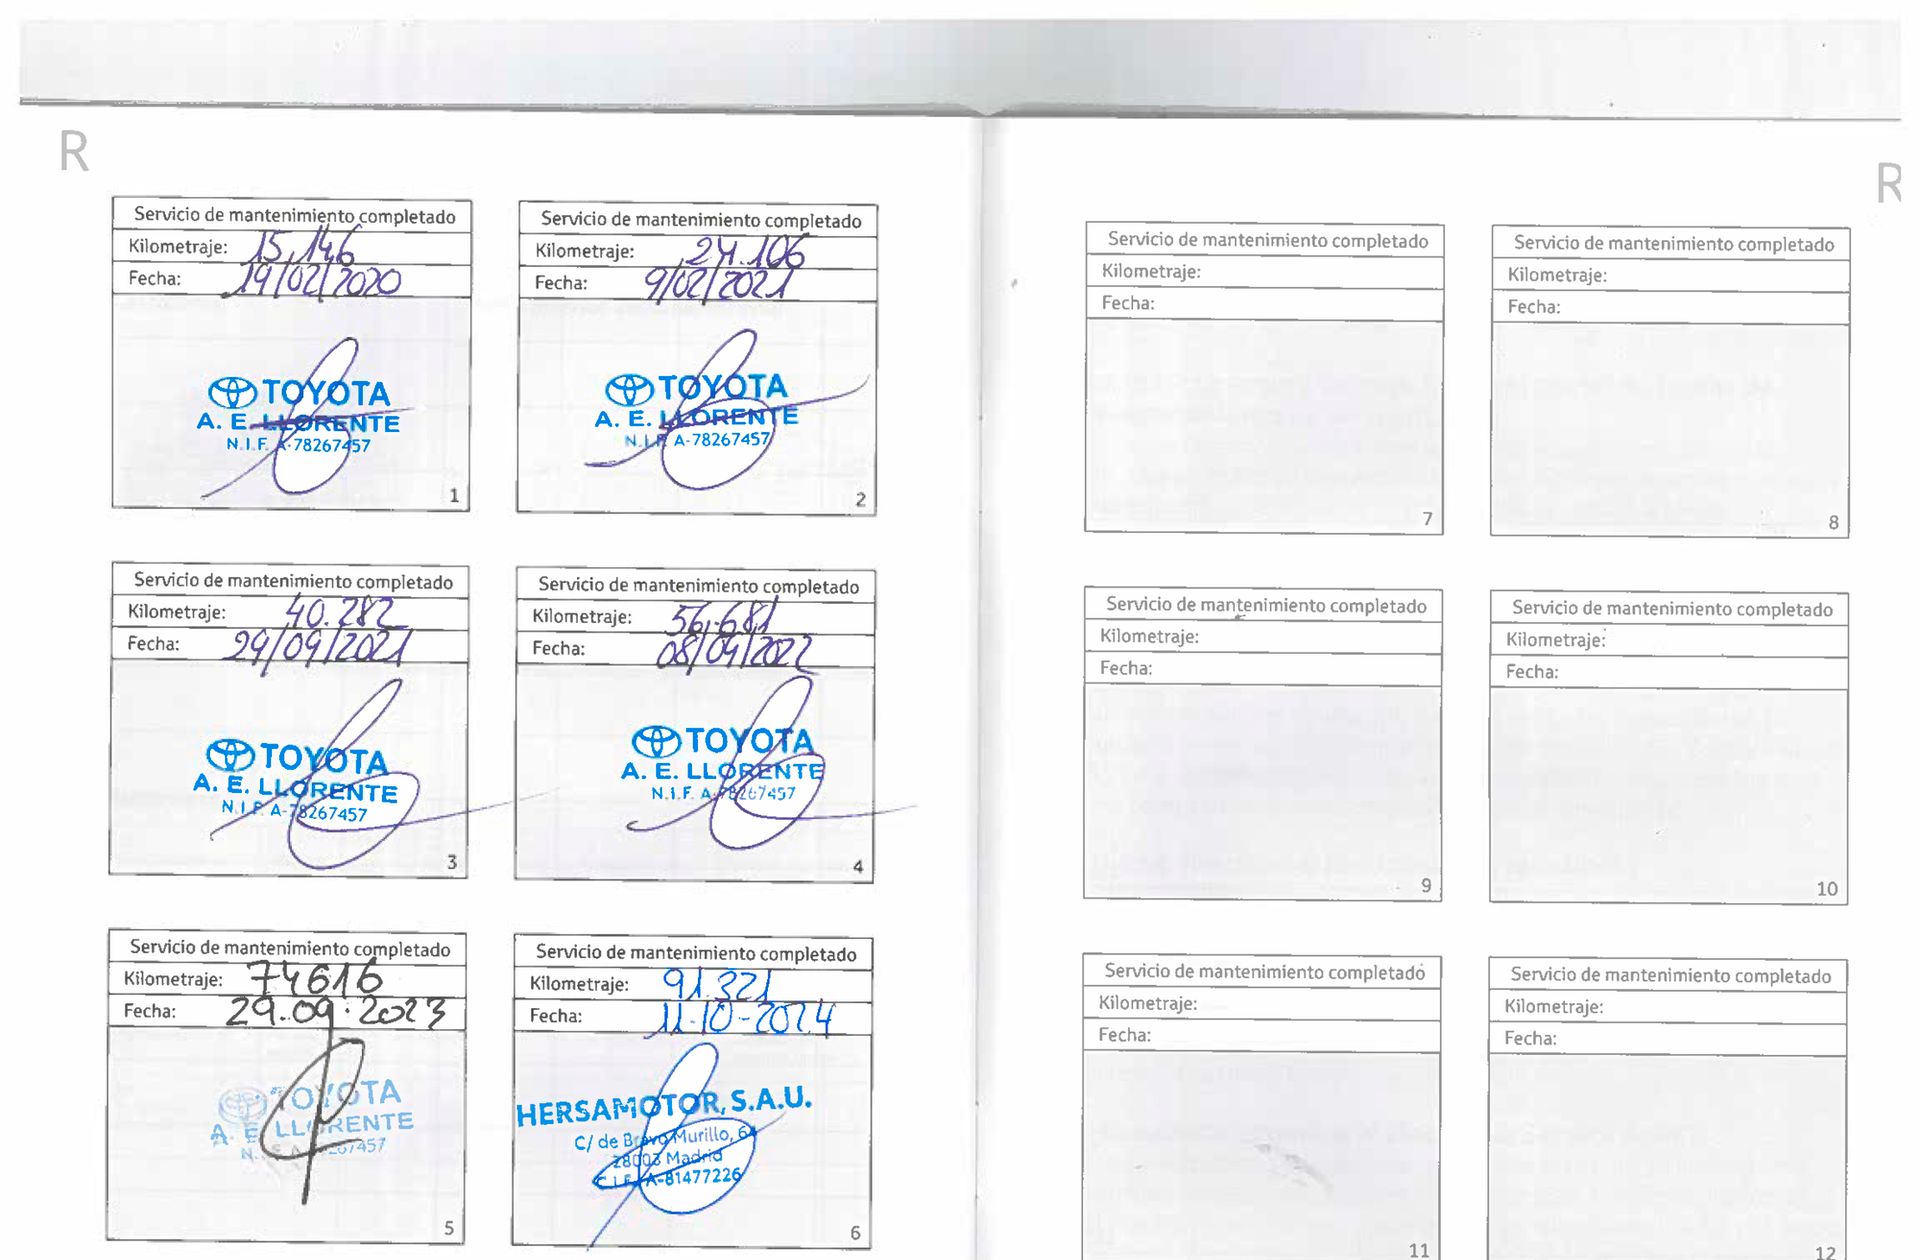 R
Servicio de mantenimiento completado
Kilometraje: 15.146
Fecha: 19/02/2020
TOYOTA
A. E. LLORENTE
N.I.F. A-78267457
1
Servicio de mantenimiento completado
Kilometraje: 24.106
Fecha: 9/02/2021
TOYOTA
A. E. LLORENTE
N.I.F. A-78267457
2
Servicio de mantenimiento completado
Kilometraje: 40.282
Fecha: 29/09/2021
TOYOTA
A. E. LLORENTE
N.I.F. A-78267457
3
Servicio de mantenimiento completado
Kilometraje: 56.681
Fecha: 08/09/2022
TOYOTA
A. E. LLORENTE
N.I.F. A-78267457
4
Servicio de mantenimiento completado
Kilometraje: 74616
Fecha: 29.09.2023
TOYOTA
A. E. LLORENTE
5
Servicio de mantenimiento completado
Kilometraje: 91.321
Fecha: 11-10-2024
HERSAMOTOR, S.A.U.
C/ de Bravo Murillo, 64
28003 Madrid
C.I.F. A-81477226
6
R
Servicio de mantenimiento completado
Kilometraje:
Fecha:
7
Servicio de mantenimiento completado
Kilometraje:
Fecha:
8
Servicio de mantenimiento completado
Kilometraje:
Fecha:
9
Servicio de mantenimiento completado
Kilometraje:
Fecha:
10
Servicio de mantenimiento completado
Kilometraje:
Fecha:
11
Servicio de mantenimiento completado
Kilometraje:
Fecha:
12